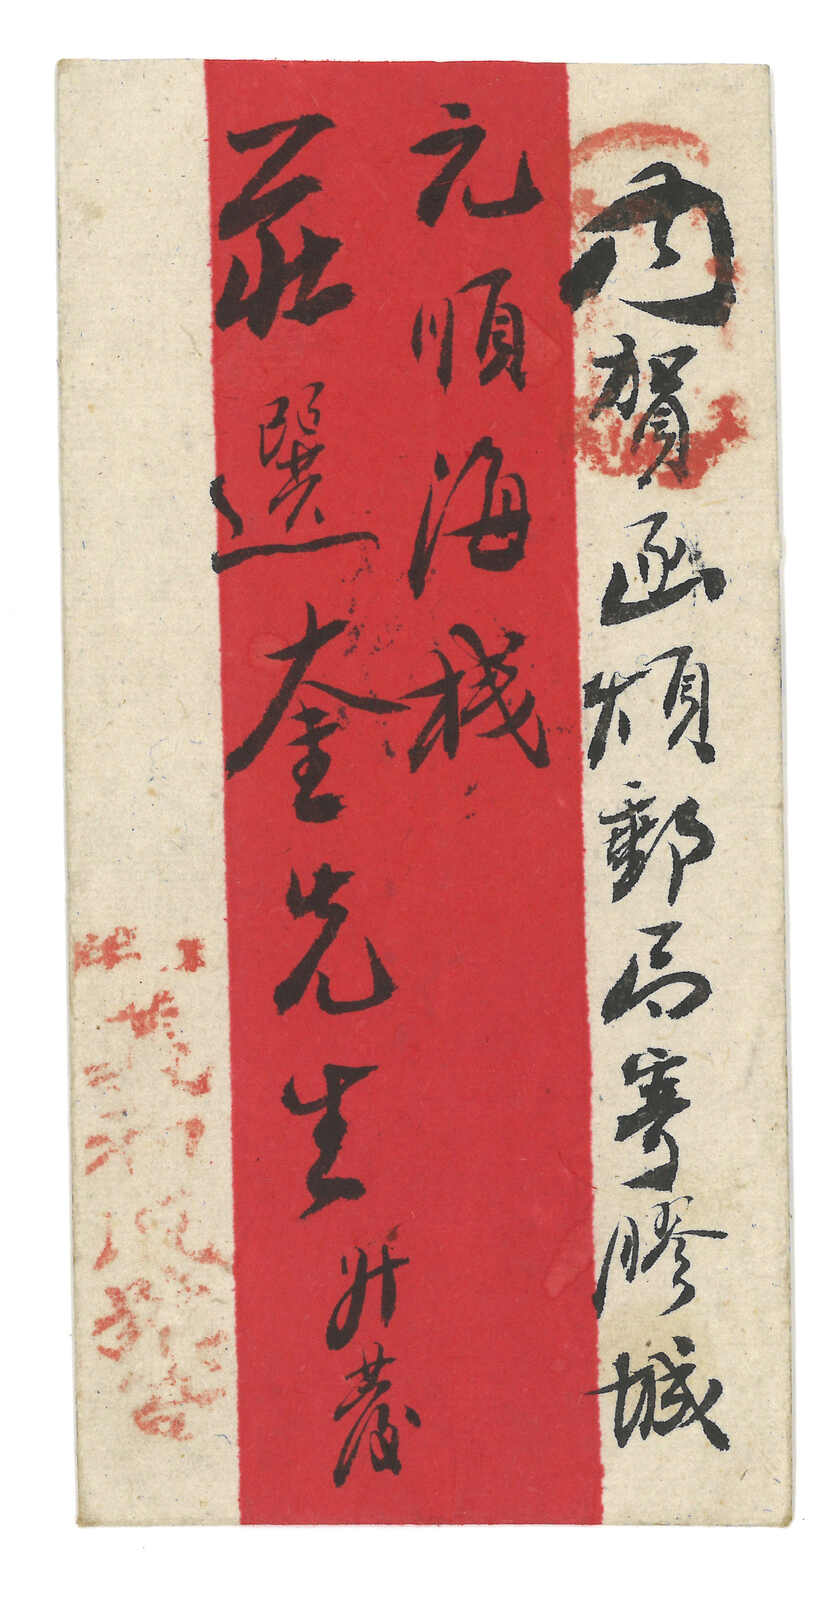 內賀函煩郵局寄膠城
元順海棧
莊選奎先生升啟